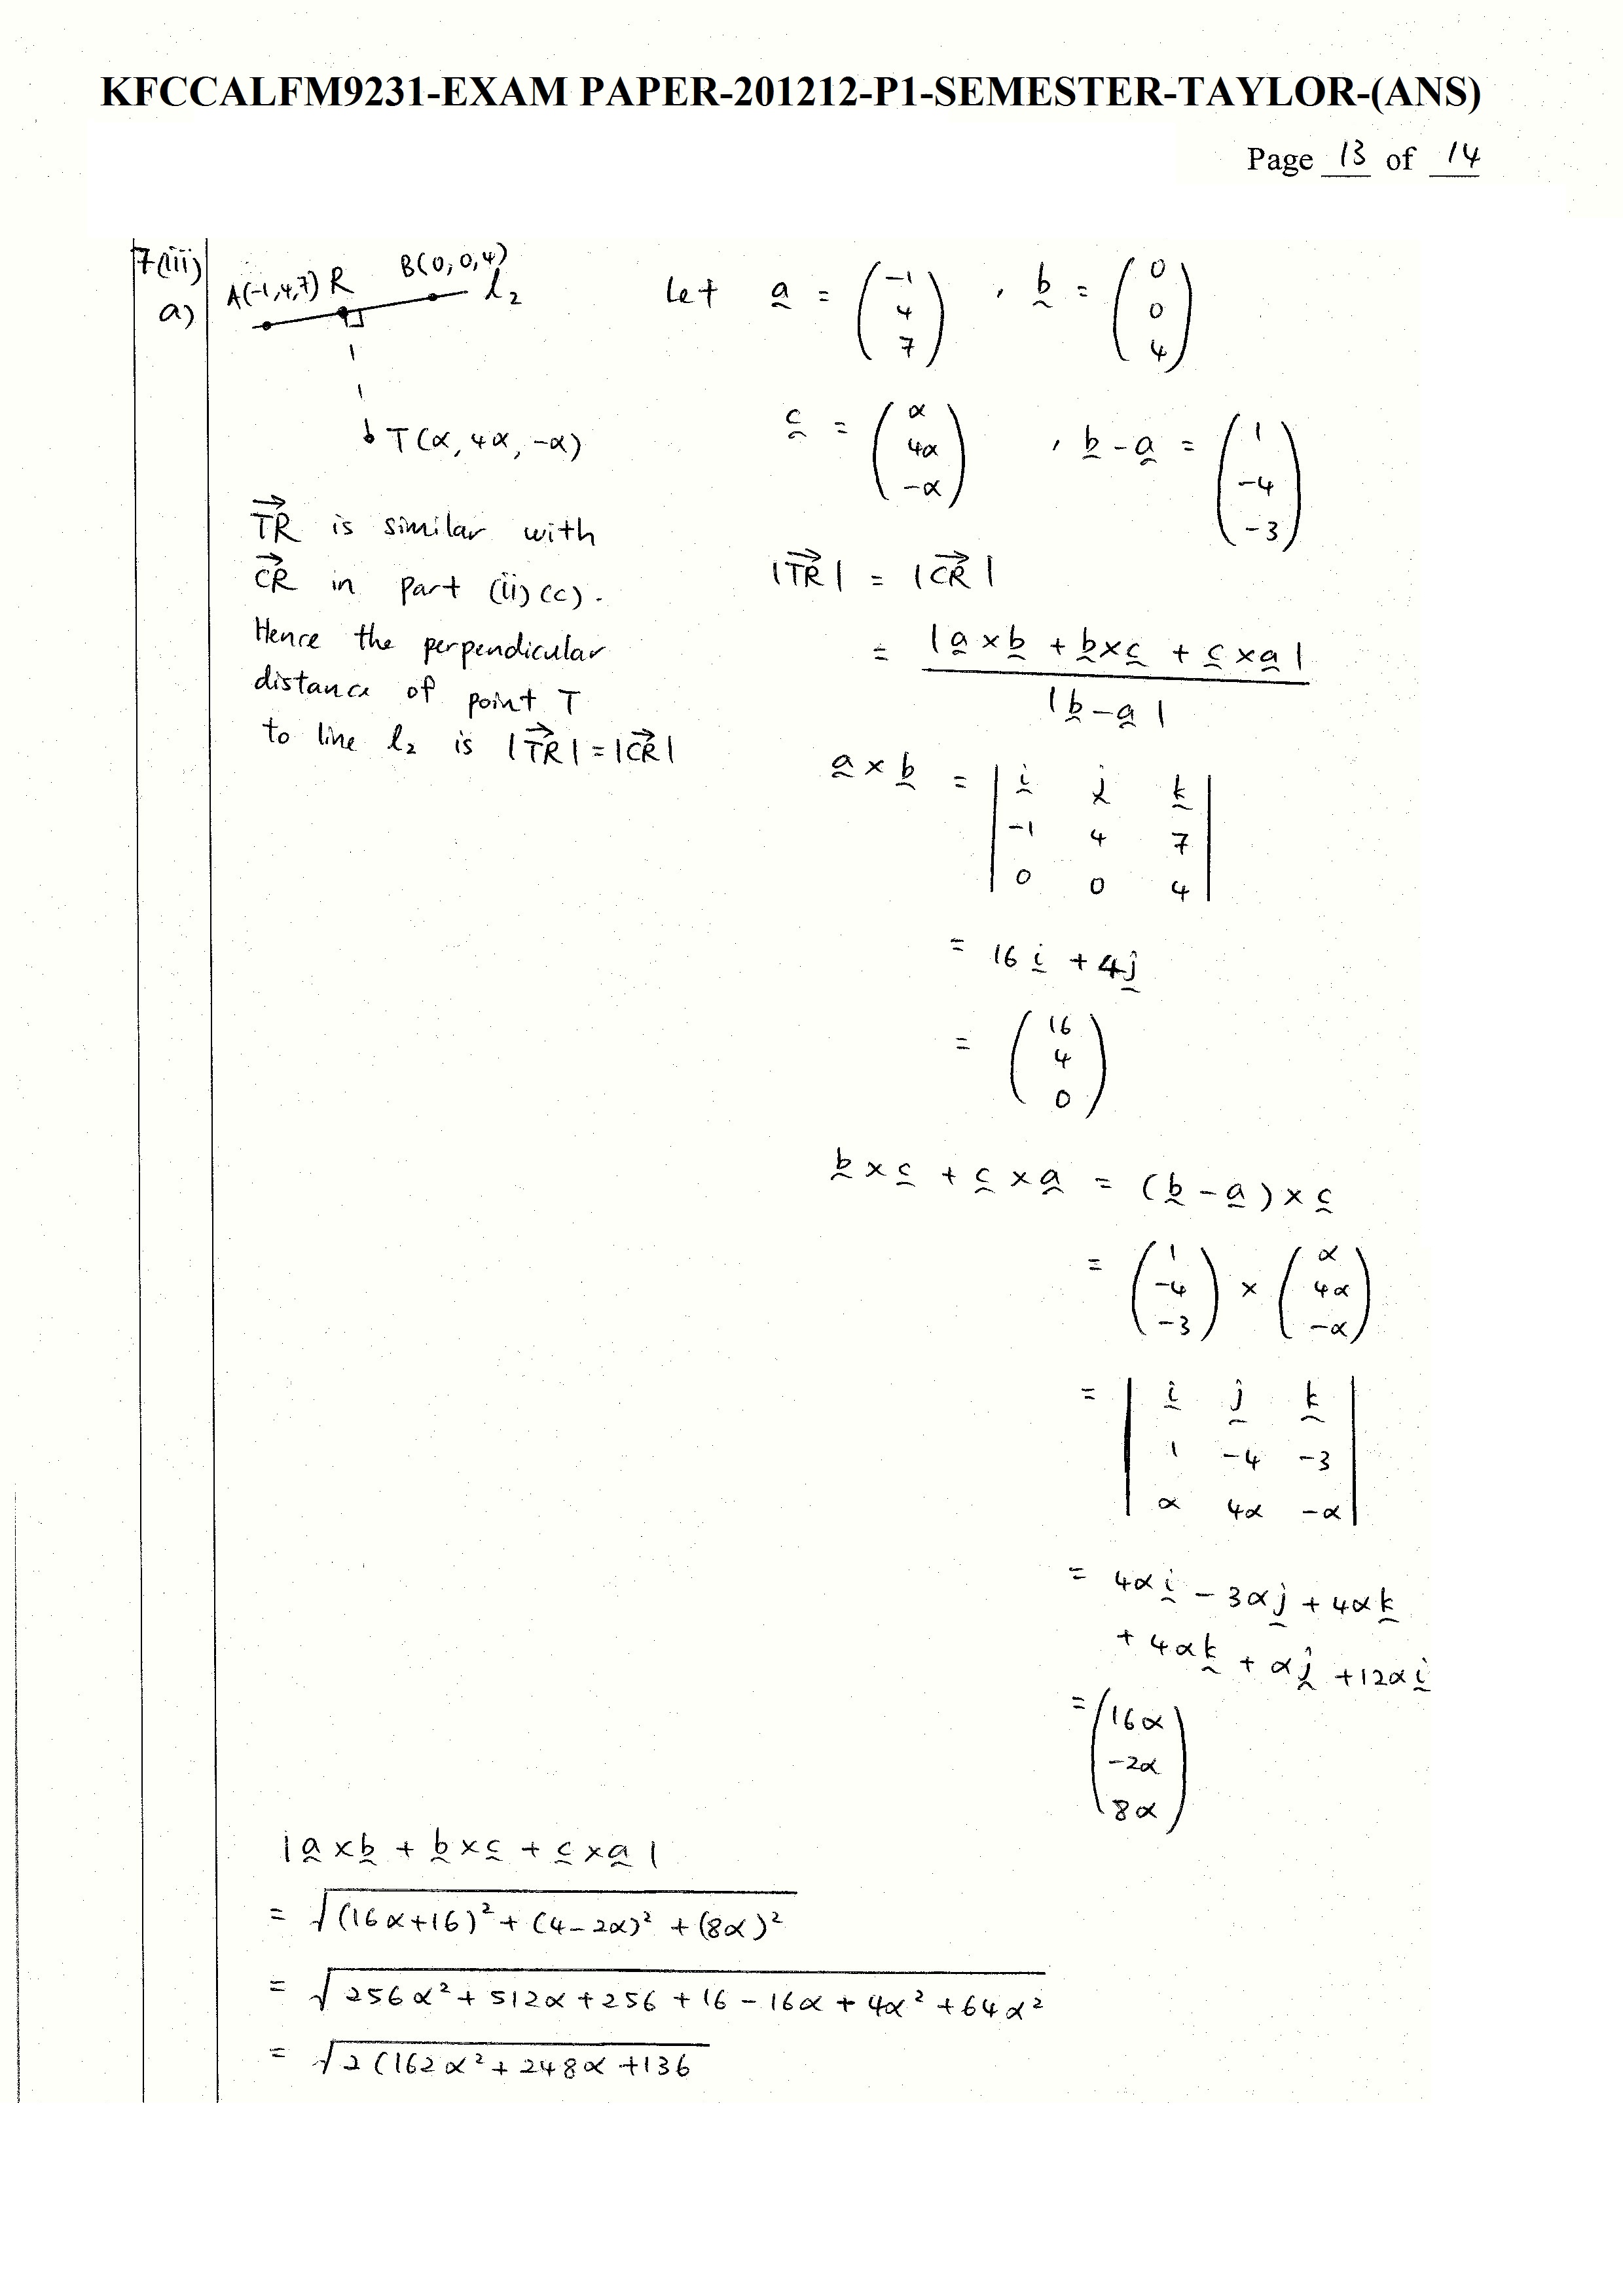 KFCCALFM9231-EXAM PAPER-201212-P1-SEMESTER-TAYLOR-(ANS)
Page 13 of 14
7(iii)
a)
A(-1,4,7) R B(0,0,4) l₂
T(α, 4α, -α)
Let a = (-1 4 7) , b = (0 0 4)
c = (α 4α -α) , b - a = (1 -4 -3)
TR is similar with
CR in part (ii)(c).
Hence the perpendicular
distance of point T
to line l₂ is |TR| = |CR|
|TR| = |CR|
= |a × b + b × c + c × a|
|b - a|
a × b = | i j k
-1 4 7
0 0 4 |
= 16 i + 4 j
= (16 4 0)
b × c + c × a = (b - a) × c
= (1 -4 -3) × (α 4α -α)
= | i j k
1 -4 -3
α 4α -α |
= 4α i - 3α j + 4α k
+ 4α k + α j + 12α i
= (16α -2α 8α)
|a × b + b × c + c × a|
= √(16α+16)² + (4-2α)² + (8α)²
= √256α² + 512α + 256 + 16 - 16α + 4α² + 64α²
= √2(162α² + 248α + 136